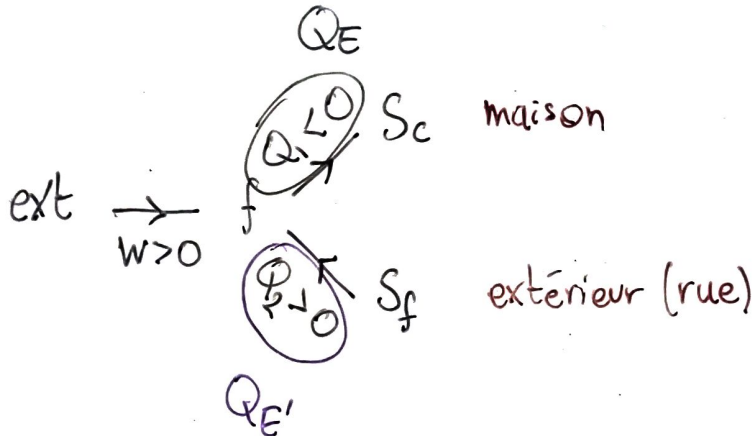 Q_E
Q_1 < 0 S_c maison
ext W>0 f
Q_2 > 0 S_f extérieur (rue)
Q_E'